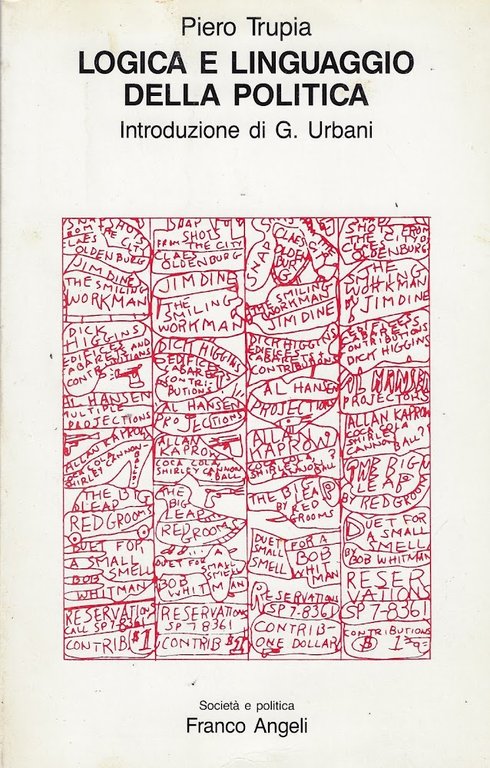 Piero Trupia
LOGICA E LINGUAGGIO
DELLA POLITICA
Introduzione di G. Urbani
SHOTS
FROM THE CITY
CLAES
OLDENBURG
JIM DINE
THE SMILING
WORKMAN
DICK
HIGGINS
EDIFICES AND
AL HANSEN
MULTIPLE
PROJECTIONS
ALLAN KAPROW
COCA COLA
SHIRLEY CANNON
BALL
THE BIG
LEAP
RED GROOMS
DUET FOR
A SMALL
SMELL
BOB
WHITMAN
RESERVATIONS
CALL SP7-8361
CONTRIB $1
SNAP
SHOTS
FROM THE CITY
CLAES
OLDENBURG
JIM DINE
THE
SMILING
WORKMAN
DICK HIGGINS
EDIFICES
CABARETS
CONTRI-
BUTIONS
AL HANSEN
PROJECTIONS
ALLAN
KAPROW
COCA COLA
SHIRLEY CANNON
BALL
THE
BIG
LEAP
RED GROOMS
DUET FOR A
SMALL
SMELL
BOB
WHITMAN
RESERVATIONS
SP 7-8361
CONTRIB $1
CLAES
OLDEN
BURG
THE SMILING
WORKMAN
JIM DINE
DICK HIGGINS
EDIFICES
CABARETS
CONTRIBUTIONS
AL HANSEN
PROJECTIONS
ALLAN
KAPROW
COCA COLA
SHIRLEY
CANNONBALL
THE BI LEAP
BY RED
GROOMS
DUET
FOR A
SMALL
SMELL
BOB
WHIT
MAN
RESERVATIONS
SP7-8361
CONTRIB-
ONE DOLLAR
SHOTS FROM
THE CITY BY
CLAES
OLDENBURG
THE
SMILING
WORKMAN
BY
JIM DINE
EDIFICES
CABARETS
CONTRIBUTIONS
DICK HIGGINS
AL HANSEN
PROJECTIONS
ALLAN KAPROW
COCA COLA
SHIRLEY
CANNON BALL
THE BIG
LEAP
BY RED GROOMS
DUET FOR
A SMALL
SMELL
BY BOB WHITMAN
RESER
VATIONS
SP 7-8361
CONTRIBUTIONS
Società e politica
Franco Angeli